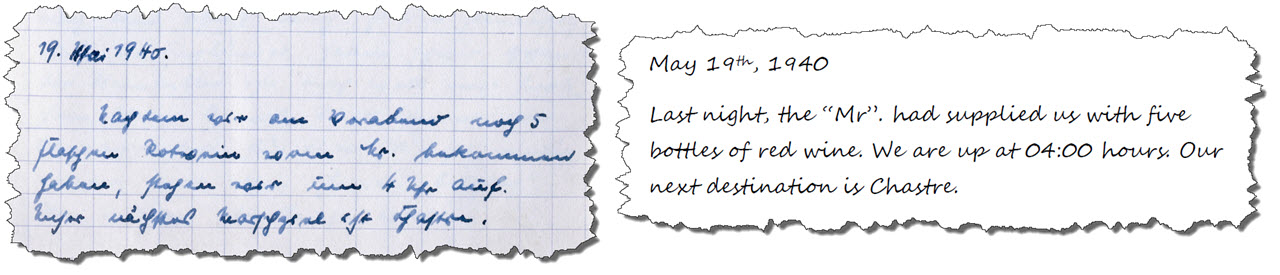 19. Mai 1940.
Nachdem wir am Vorabend noch 5
Flaschen Rotwein vom bekommen
haben, stehen wir um 4 Uhr auf.
Unser nächstes Marschziel ist Chastre.
May 19th, 1940
Last night, the “Mr”. had supplied us with five
bottles of red wine. We are up at 04:00 hours. Our
next destination is Chastre.